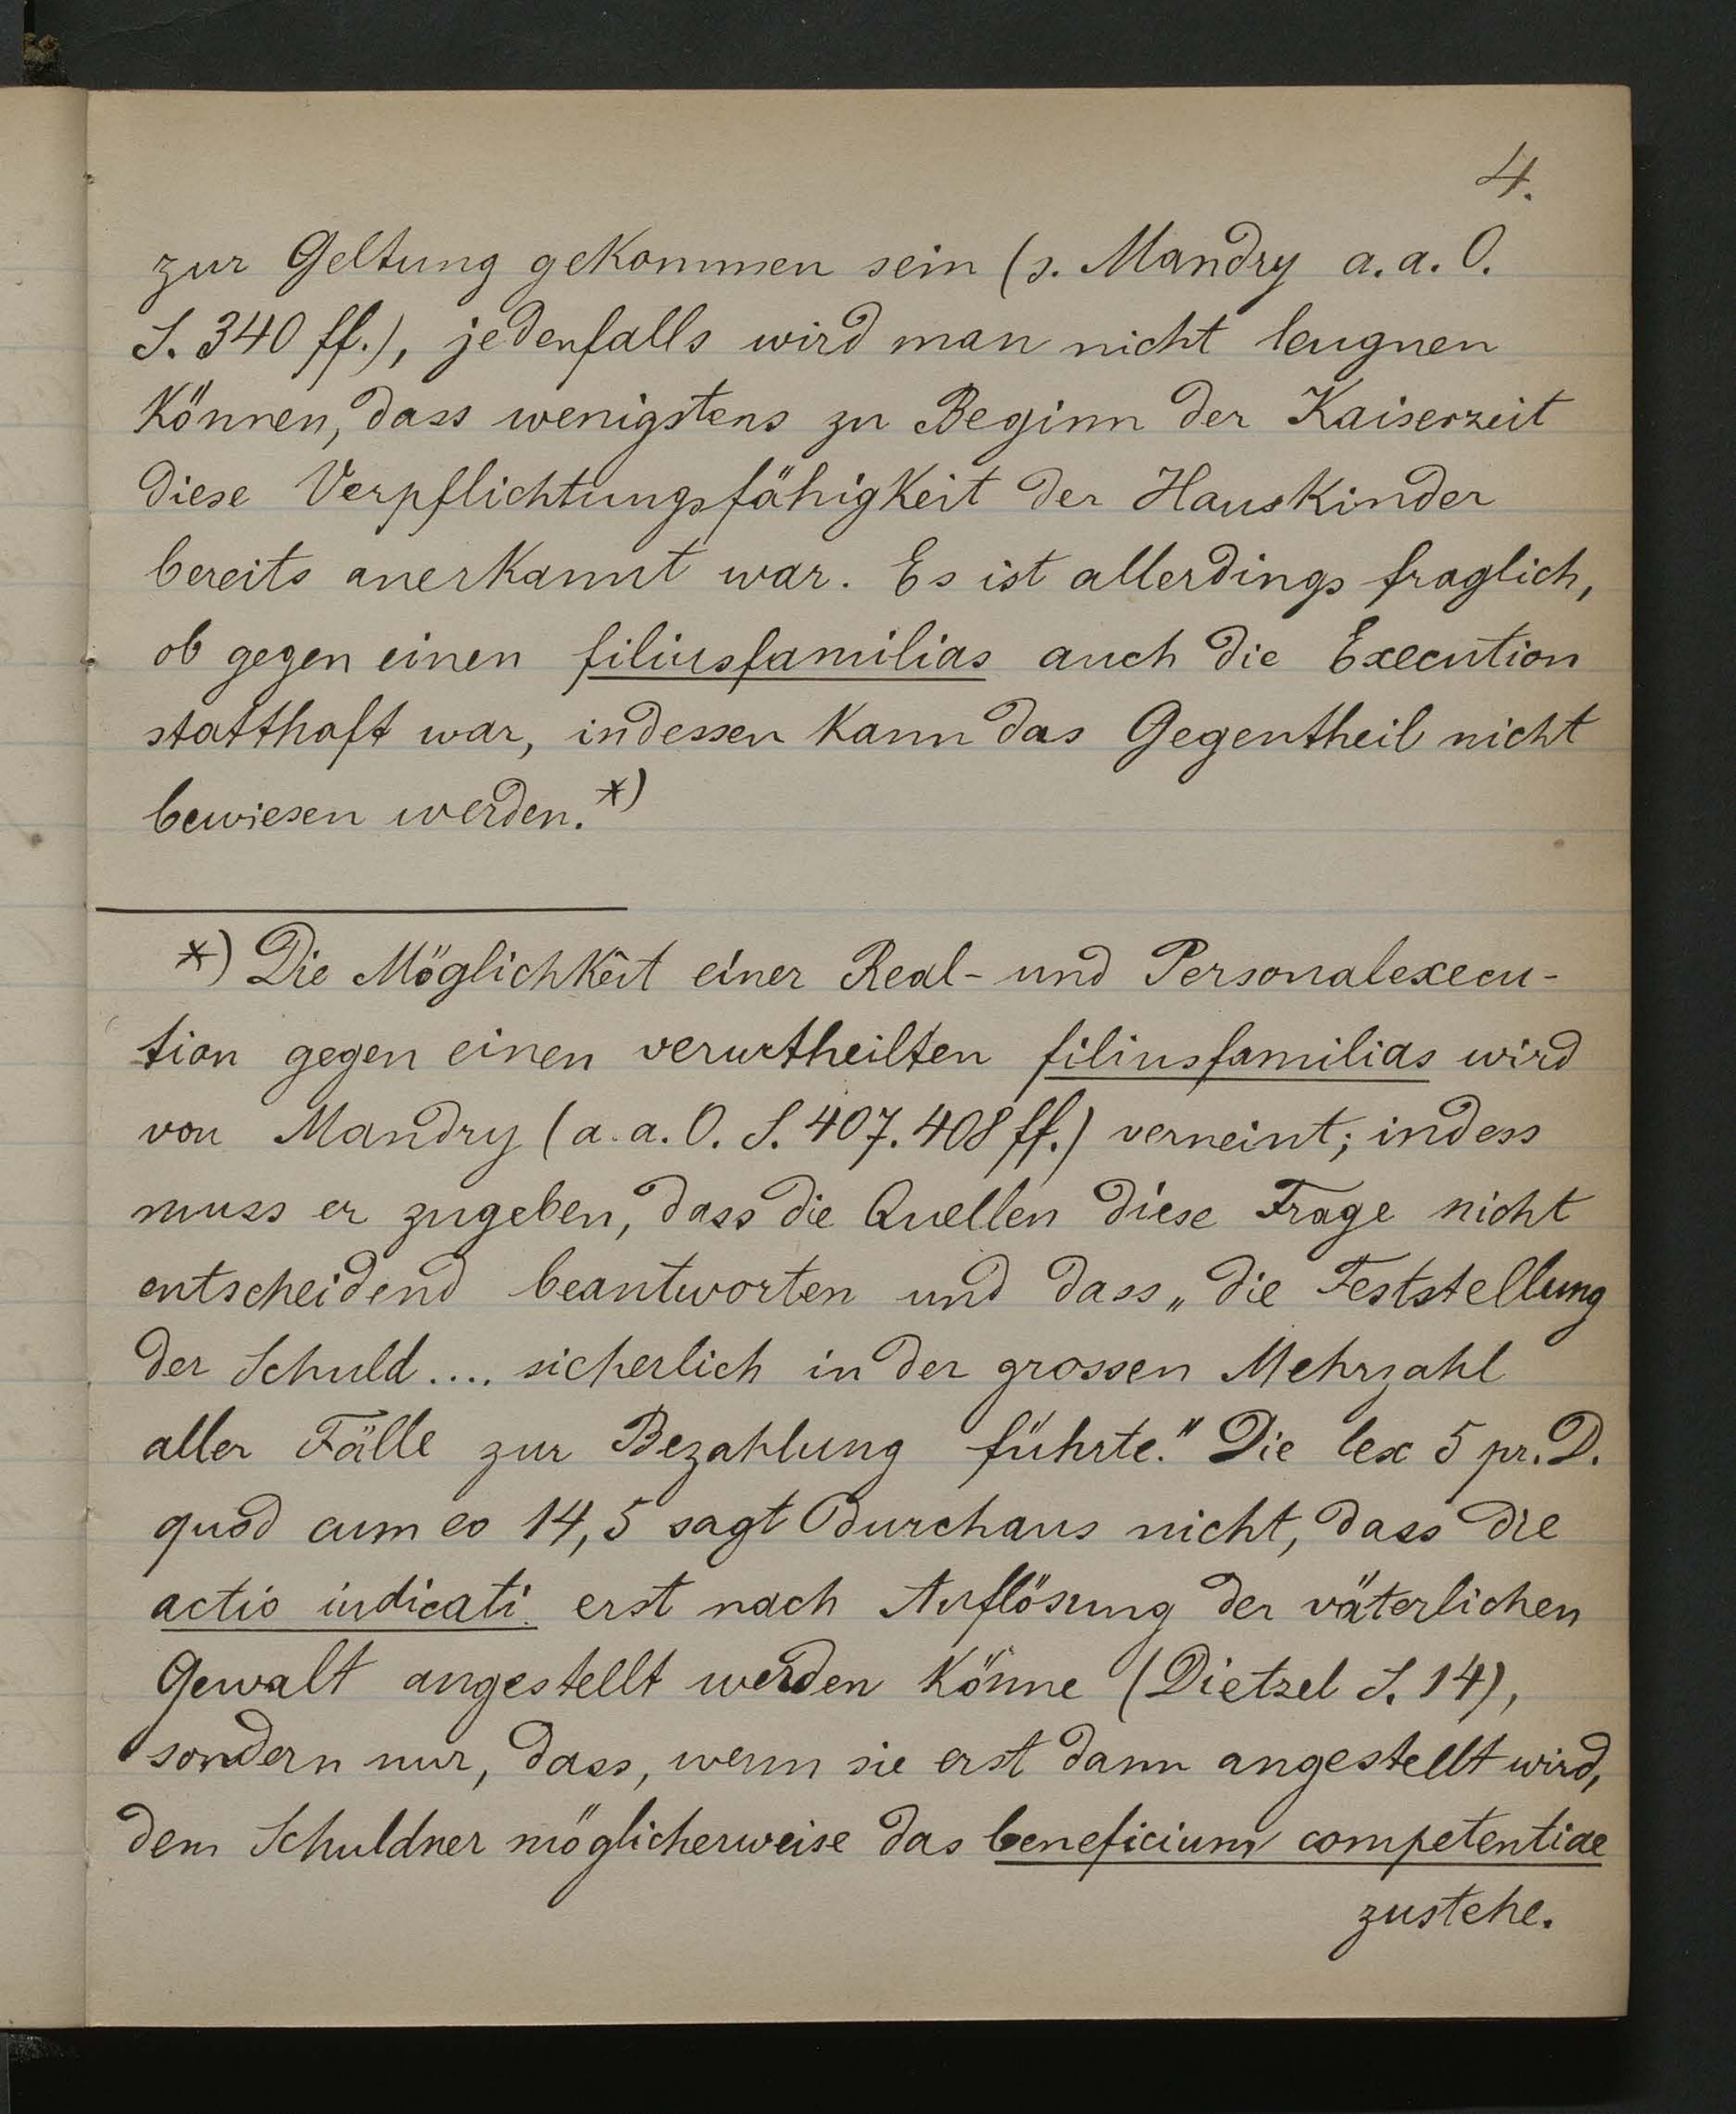 4.
zur Geltung gekommen sein (s. Mandry a. a. O.
S. 340 ff.), jedenfalls wird man nicht leugnen
können, dass wenigstens zu Beginn der Kaiserzeit
diese Verpflichtungsfähigkeit der Hauskinder
bereits anerkannt war. Es ist allerdings fraglich,
ob gegen einen filiusfamilias auch die Execution
statthaft war, indessen kann das Gegentheil nicht
bewiesen werden.*)
*) Die Möglichkeit einer Real- und Personalexecu-
tion gegen einen verurtheilten filiusfamilias wird
von Mandry (a. a. O. S. 407. 408 ff.) verneint; indess
muss er zugeben, dass die Quellen diese Frage nicht
entscheidend beantworten und dass „die Feststellung
der Schuld .... sicherlich in der grossen Mehrzahl
aller Fälle zur Bezahlung führte." Die lex 5 pr. D.
quod cum eo 14,5 sagt durchaus nicht, dass die
actio iudicati erst nach Auflösung der väterlichen
Gewalt angestellt werden könne (Dietzel S. 14),
sondern nur, dass, wenn sie erst dann angestellt wird,
dem Schuldner möglicherweise das beneficium competentiae
zustehe.